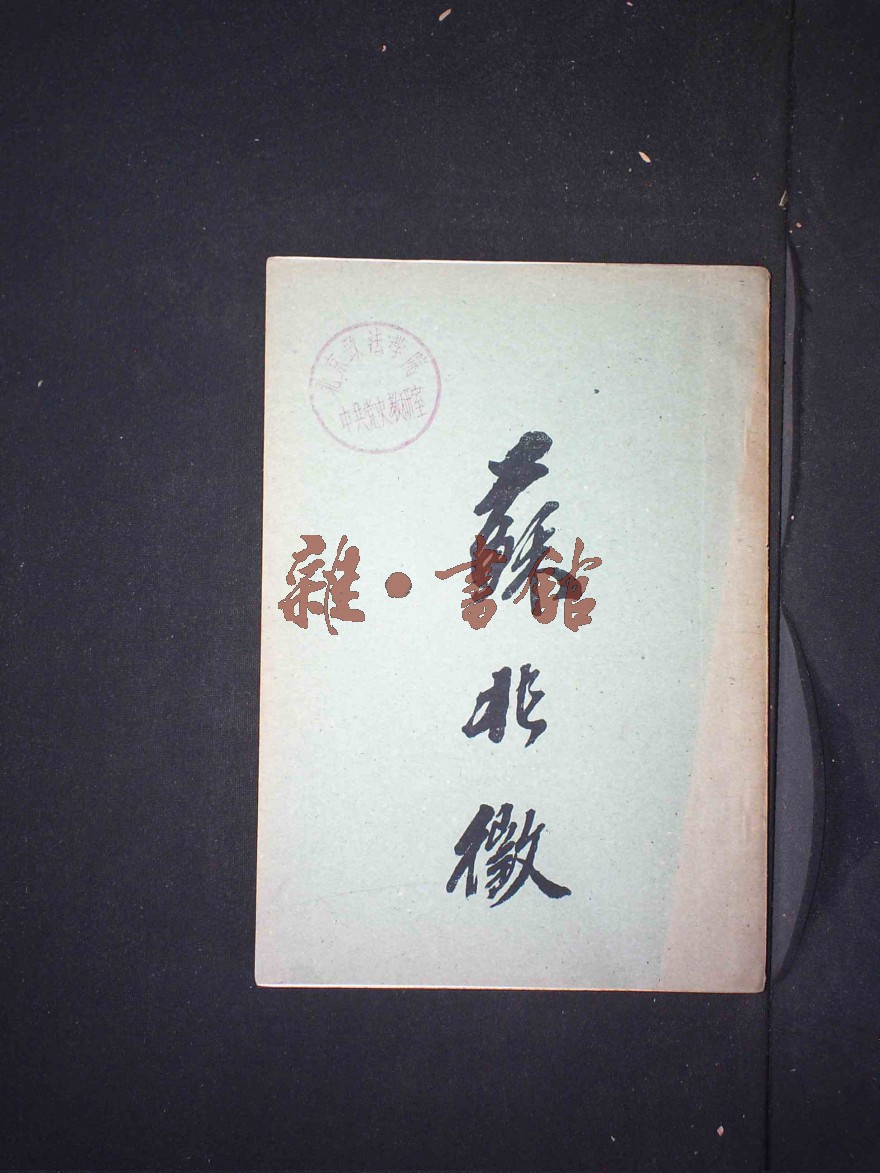 北京政法学院
中共党史教研室
蘇北徵
雜·書館